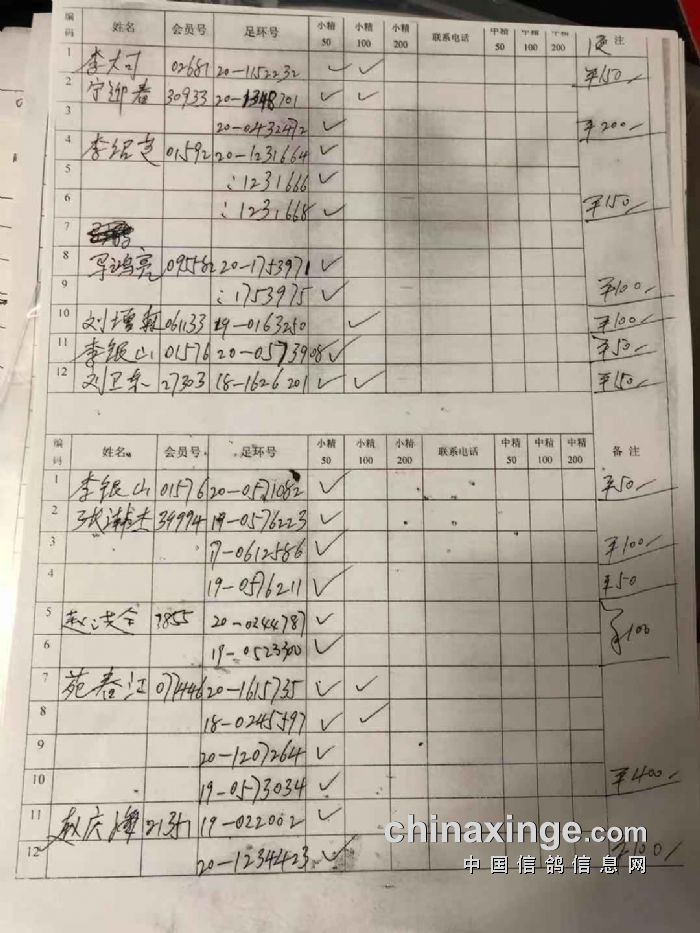 编码 姓名 会员号 足环号 小精50 小精100 小精200 联系电话 中精50 中精100 中精200 备注
1 李大可 02681 20-1152232 ✓ ✓ ¥150
2 宁迎春 30933 20-1348701 ✓ ✓
3 20-0432472 ✓ ¥200
4 李绍芝 01592 20-1231664 ✓
5 ：1231666 ✓
6 ：1231668 ✓ ¥150
7
8 鸿亮 095582 20-1753971 ✓
9 ：1753975 ✓ ¥100
10 刘增朝 061133 19-0163250 ✓ ¥100
11 李银山 01576 20-0573908 ✓ ¥50
12 刘卫东 27303 18-1626201 ✓ ✓ ¥150
编码 姓名 会员号 足环号 小精50 小精100 小精200 联系电话 中精50 中精100 中精200 备注
1 李银山 01576 20-0571082 ✓ ¥50
2 张浦杰 34994 19-0576223 ✓
3 17-0612586 ✓ ¥100
4 19-0576211 ✓ ¥50
5 赵洪全 3855 20-0244787 ✓ ¥100
6 19-0523300 ✓
7 苑春江 077446 20-1615735 ✓ ✓
8 18-0245597 ✓ ✓
9 20-1207264 ✓
10 19-0573034 ✓ ¥400
11 赵庆 19-022002 ✓
12 20-1234423 ✓ ¥100
chinaxinge.com
中国信鸽信息网